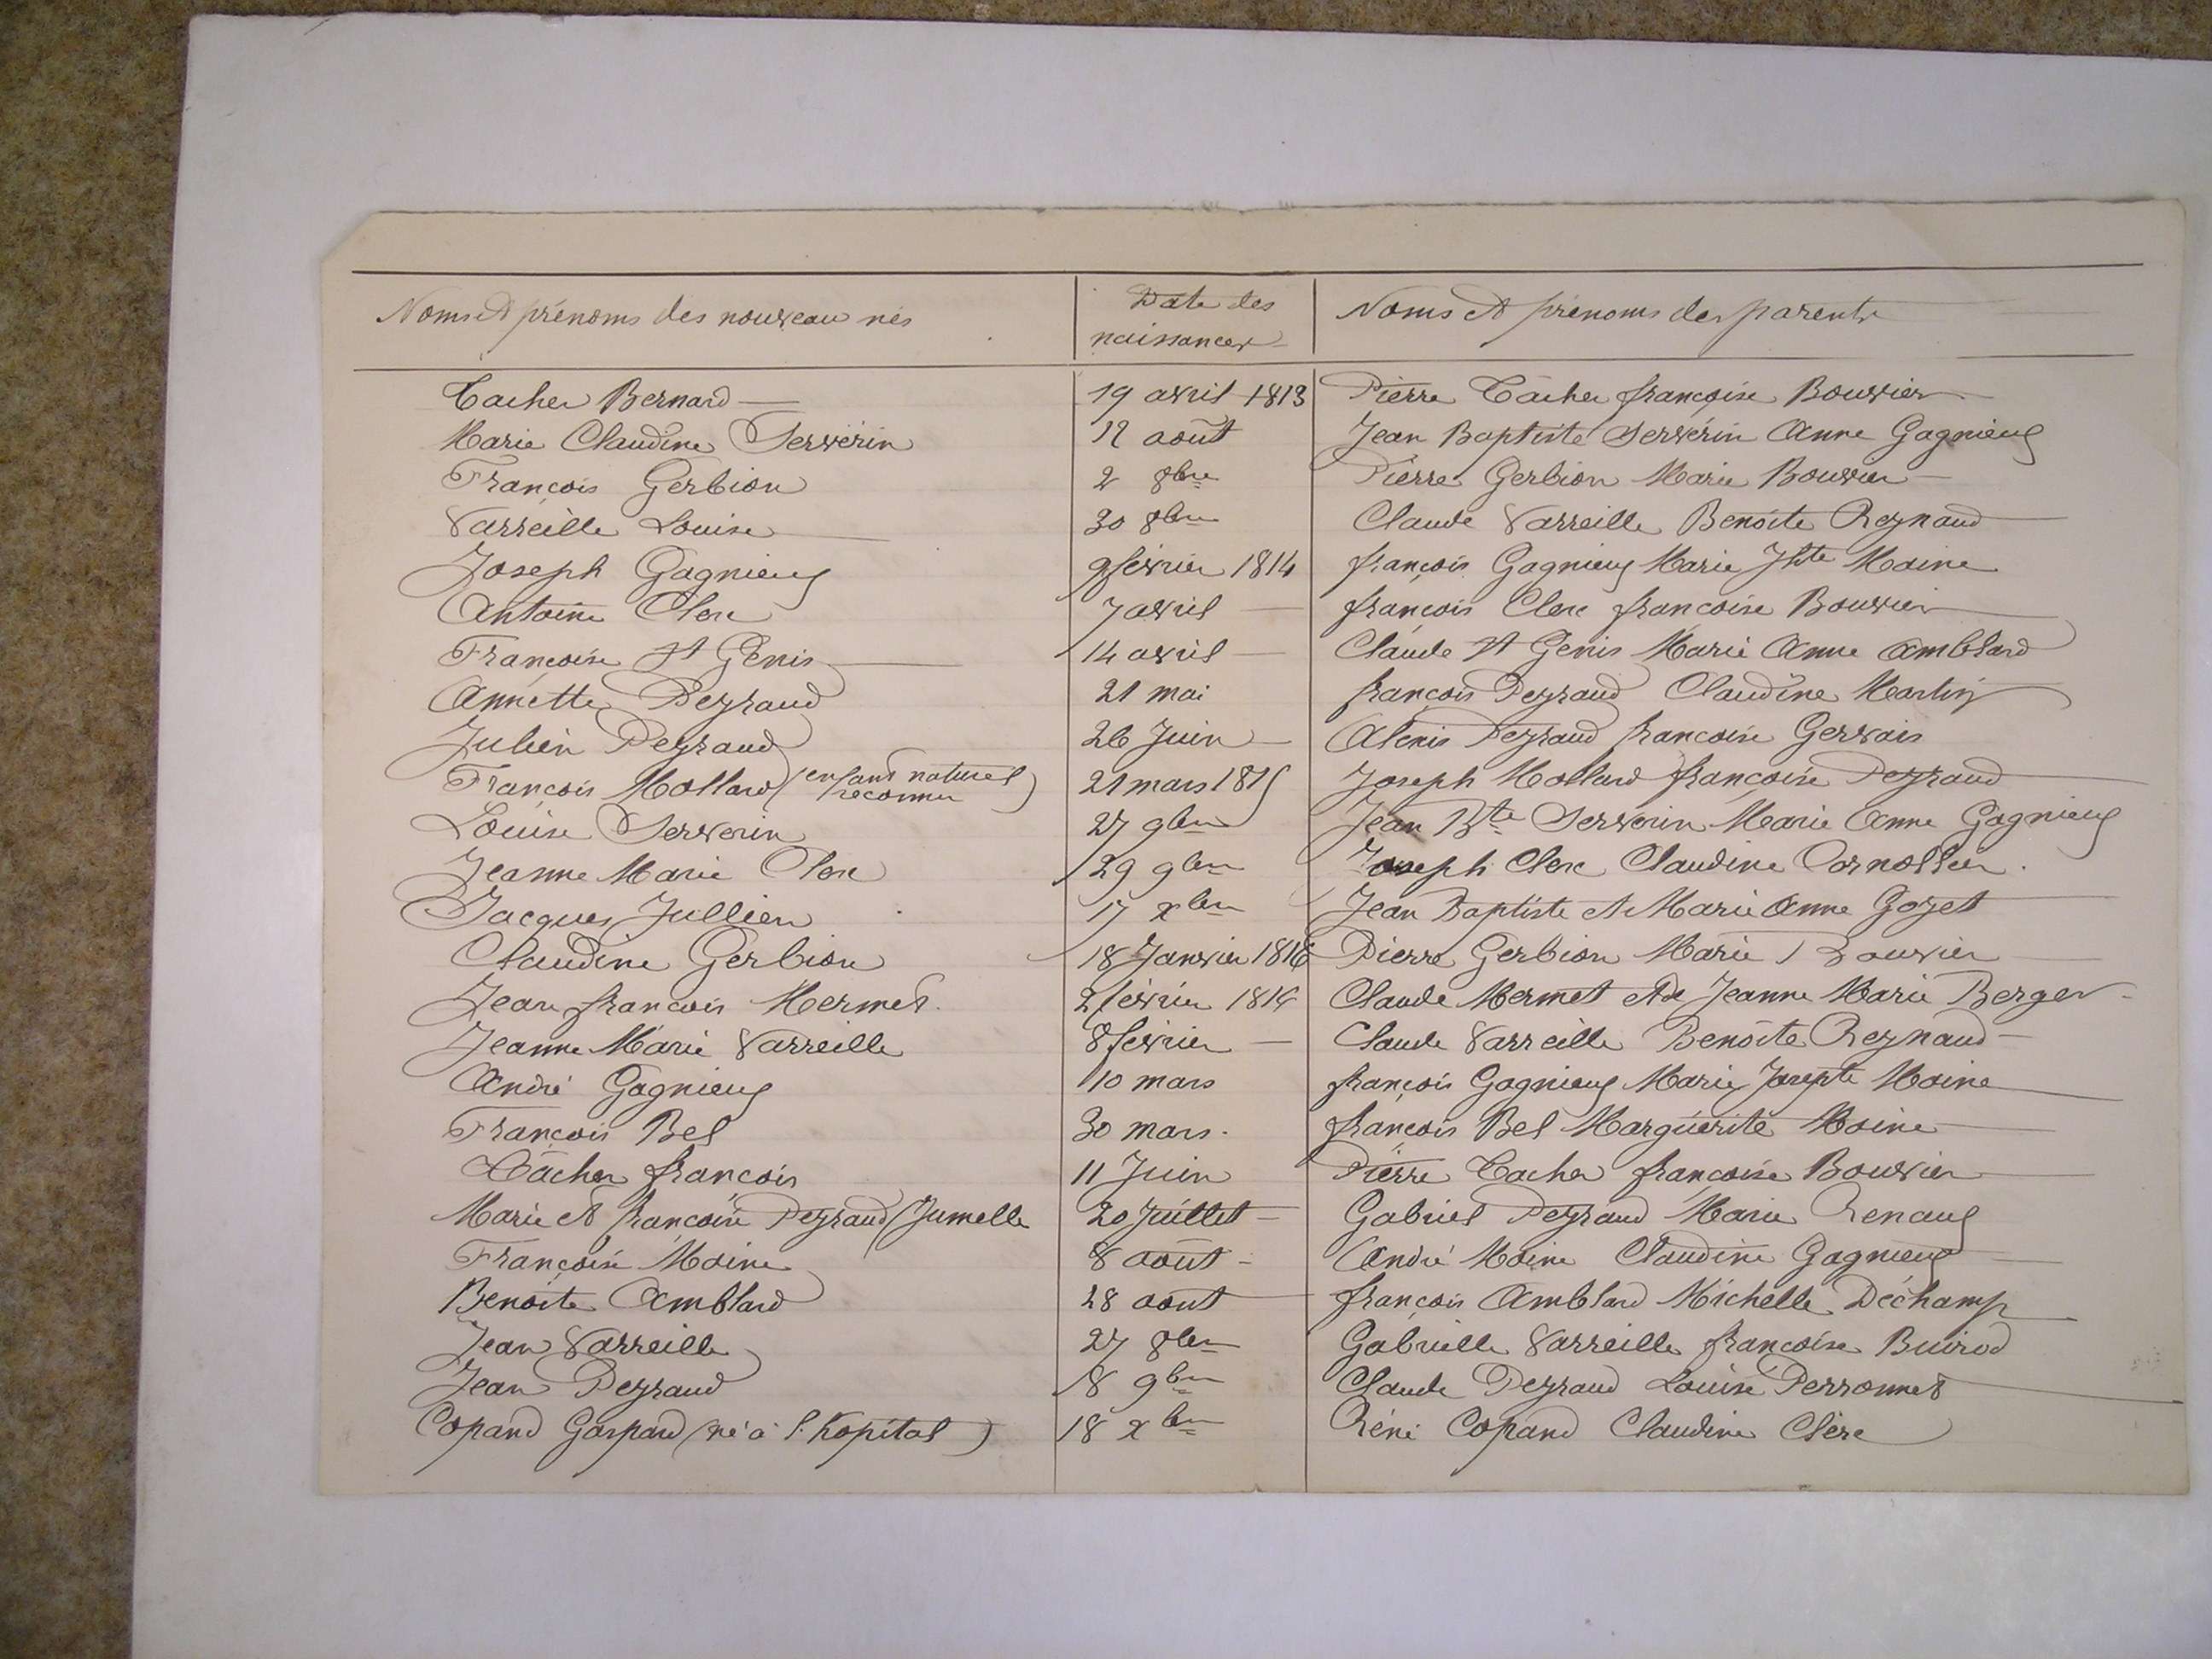 Noms et prénoms des nouveau nés | Date des naissances | Noms et prénoms des parents
Cacher Bernard | 19 avril 1813 | Pierre Câcher françoise Bouvier
Marie Claudine Servérin | 12 août | Jean Baptiste Servérin Anne Gagnieux
François Gerbion | 2 8bre | Pierre Gerbion Marie Bouvier
Varreille Louise | 30 8bre | Claude Varreille Benoite Reynaud
Joseph Gagnieux | 9 février 1814 | françois Gagnieux Marie Jhte Moine
Antoine Clerc | 7 avril | françois Clerc françoise Bouvier
Françoise St Genis | 14 avril | Claude St Genis Marie Anne Amblard
Annette Peyraud | 21 mai | françois Peyraud Claudine Martin
Julien Peyraud | 26 Juin | Alexis Peyraud françoise Gervais
François Mollard (enfant naturel reconnu) | 21 mars 1815 | Joseph Mollard françoise Peyraud
Louise Serverin | 27 9bre | Jean Bte Serverin Marie Anne Gagnieux
Jeanne Marie Clerc | 29 9bre | Joseph Clerc Claudine
Jacques Jullien | 17 xbre | Jean Baptiste et Marie Anne Gozet
Claudine Gerbion | 18 Janvier 1816 | Pierre Gerbion Marie Bouvier
Jean françois Mermet. | 2 février 1816 | Claude Mermet et de Jeanne Marie Berger
Jeanne Marie Varreille | 8 février | Claude Varreille Benoite Reynaud
André Gagnieux | 10 mars | françois Gagnieux Marie Josepte Moine
François Bel | 30 mars. | françois Bel Marguérite Moine
Câcher françois | 11 Juin | Pierre Cacher françoise Bouvier
Marie et françoise Peyraud (Jumelle | 20 Juillet | Gabriel Peyraud Marie Renaux
Françoise Moine | 8 août | André Moine Claudine Gagnieux
Benoite Amblard | 28 août | françois Amblard Michelle Déchamp
Jean Varreille | 27 8bre | Gabrielle Varreille françoise Buirod
Jean Peyraud | 18 9bre | Claude Peyraud Louise Perronnet
Copand Gaspard (né à l'hôpital) | 18 xbre | Réné Copand Claudine Clerc